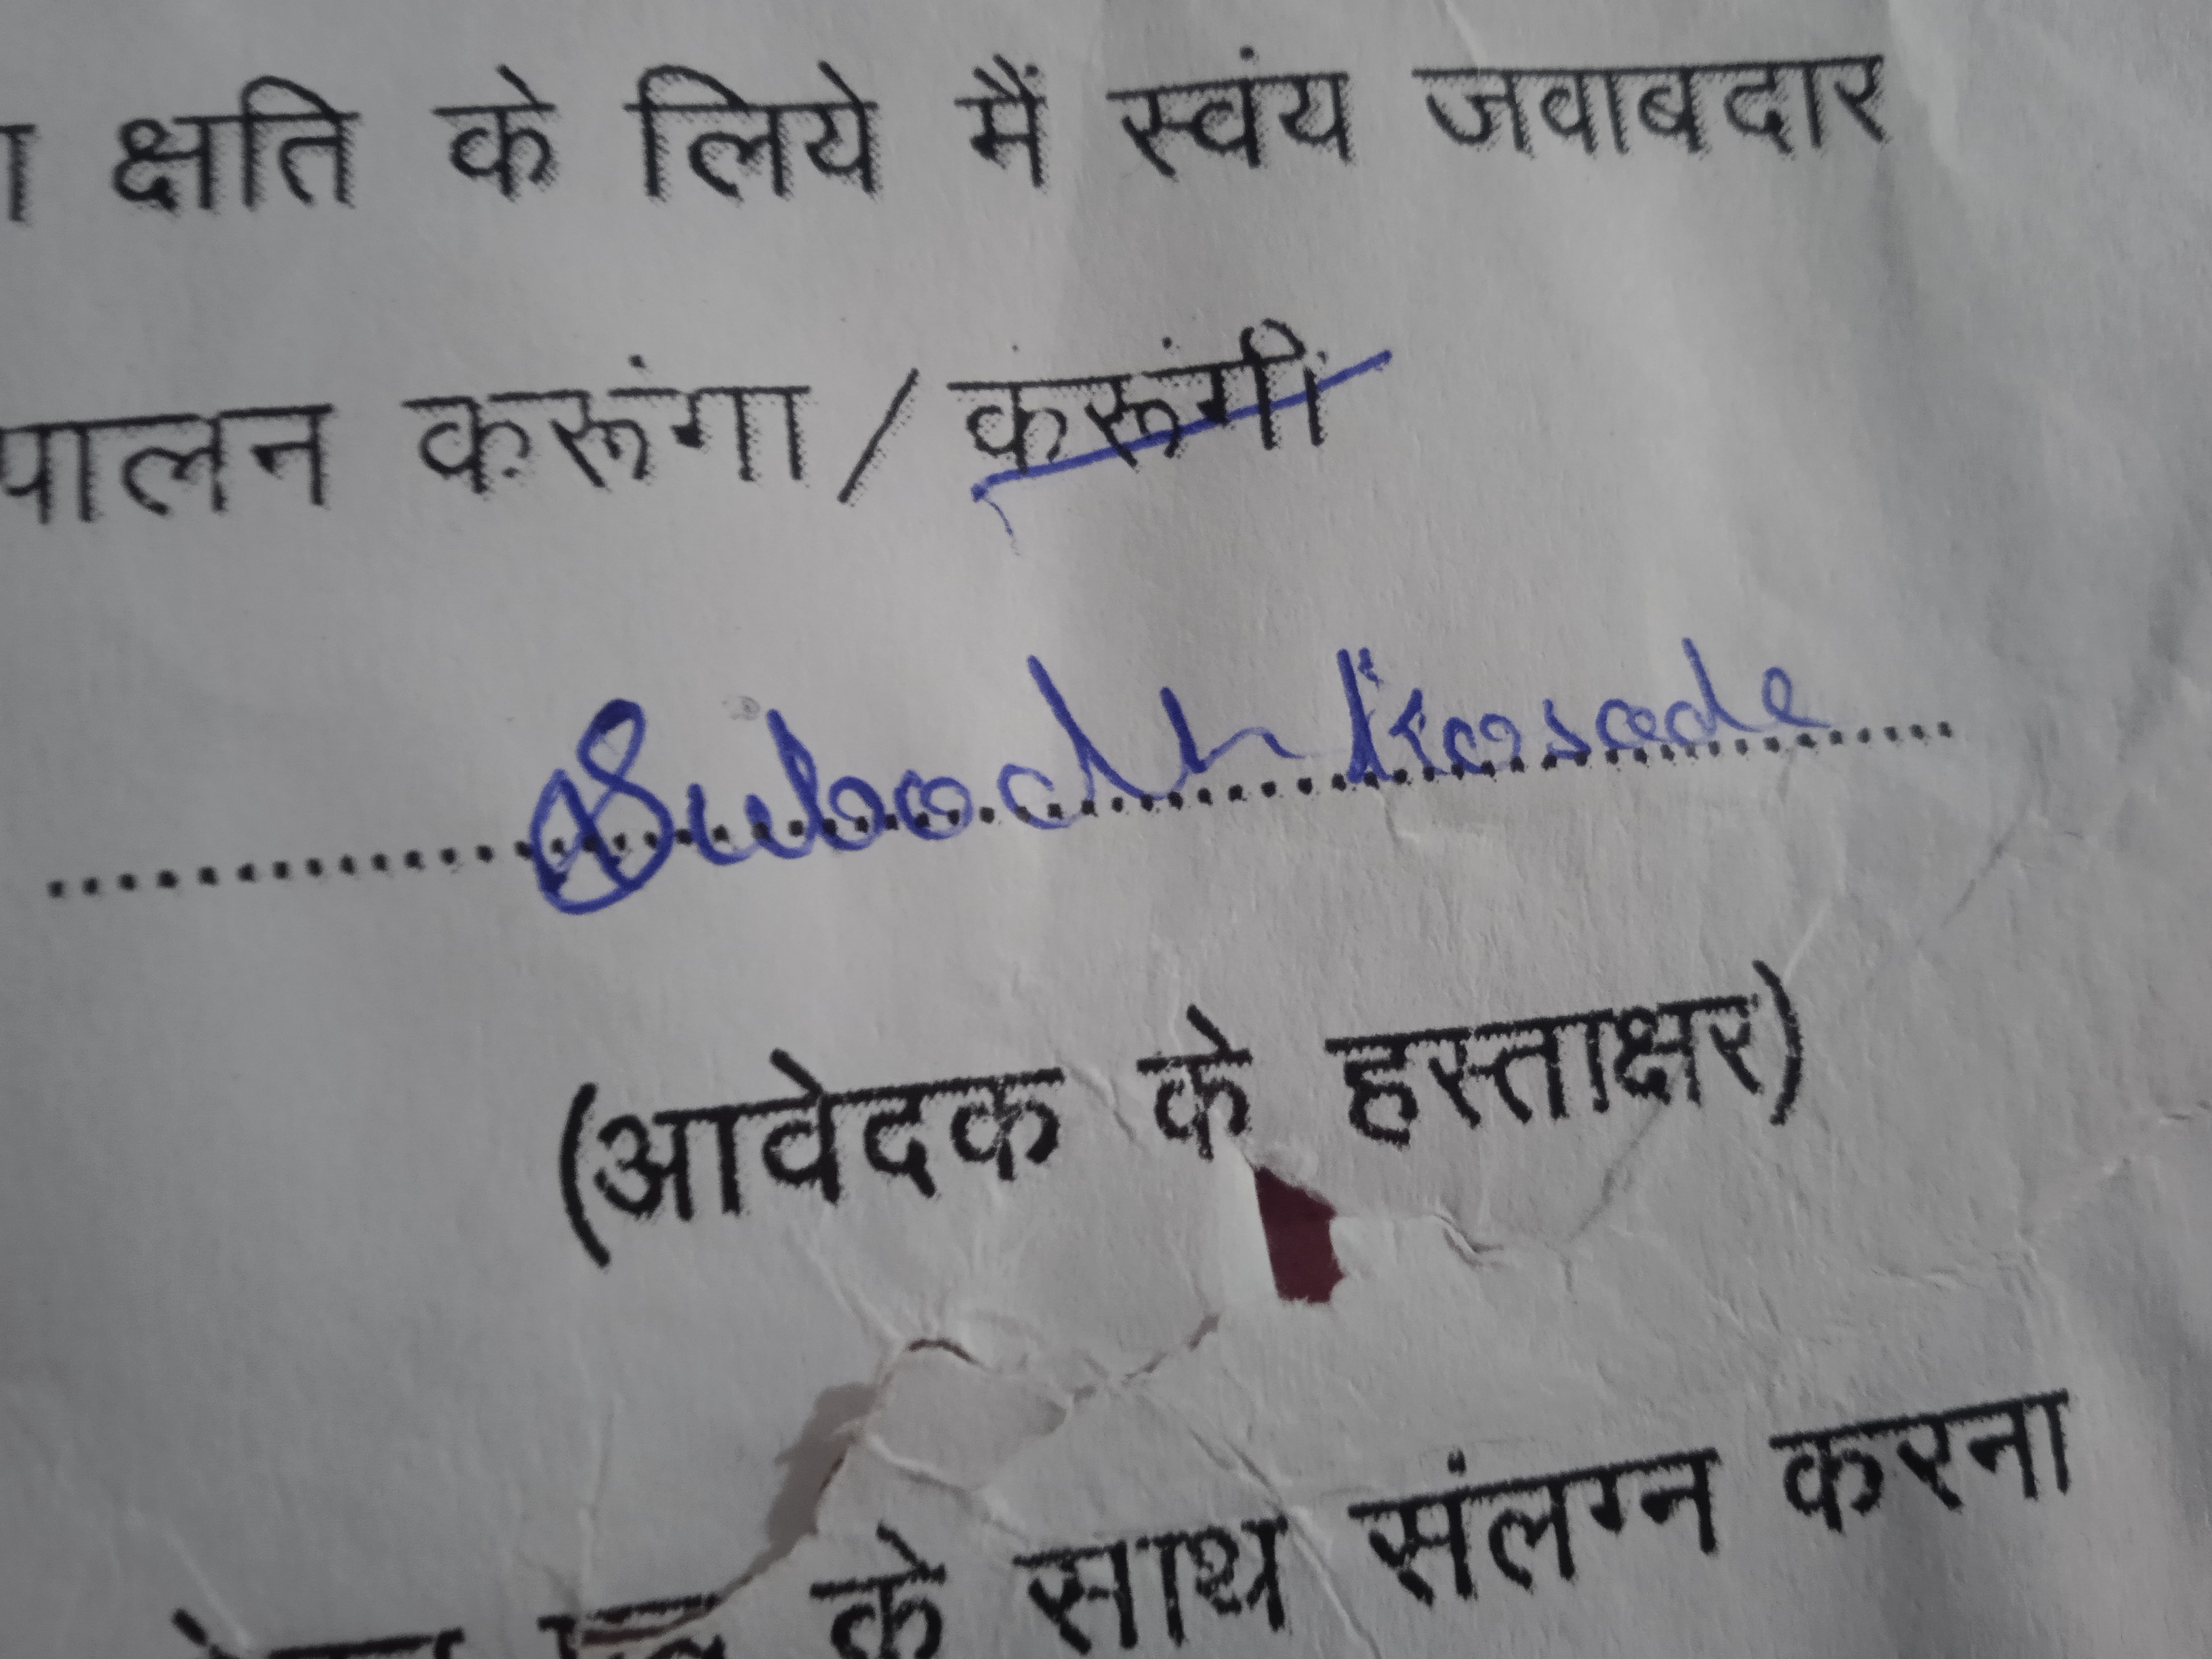 क्षति के लिये मैं स्वंय जवाबदार
पालन करूंगा / करूंगी
Subodh Kasade
(आवेदक के हस्ताक्षर)
के साथ संलग्न करना